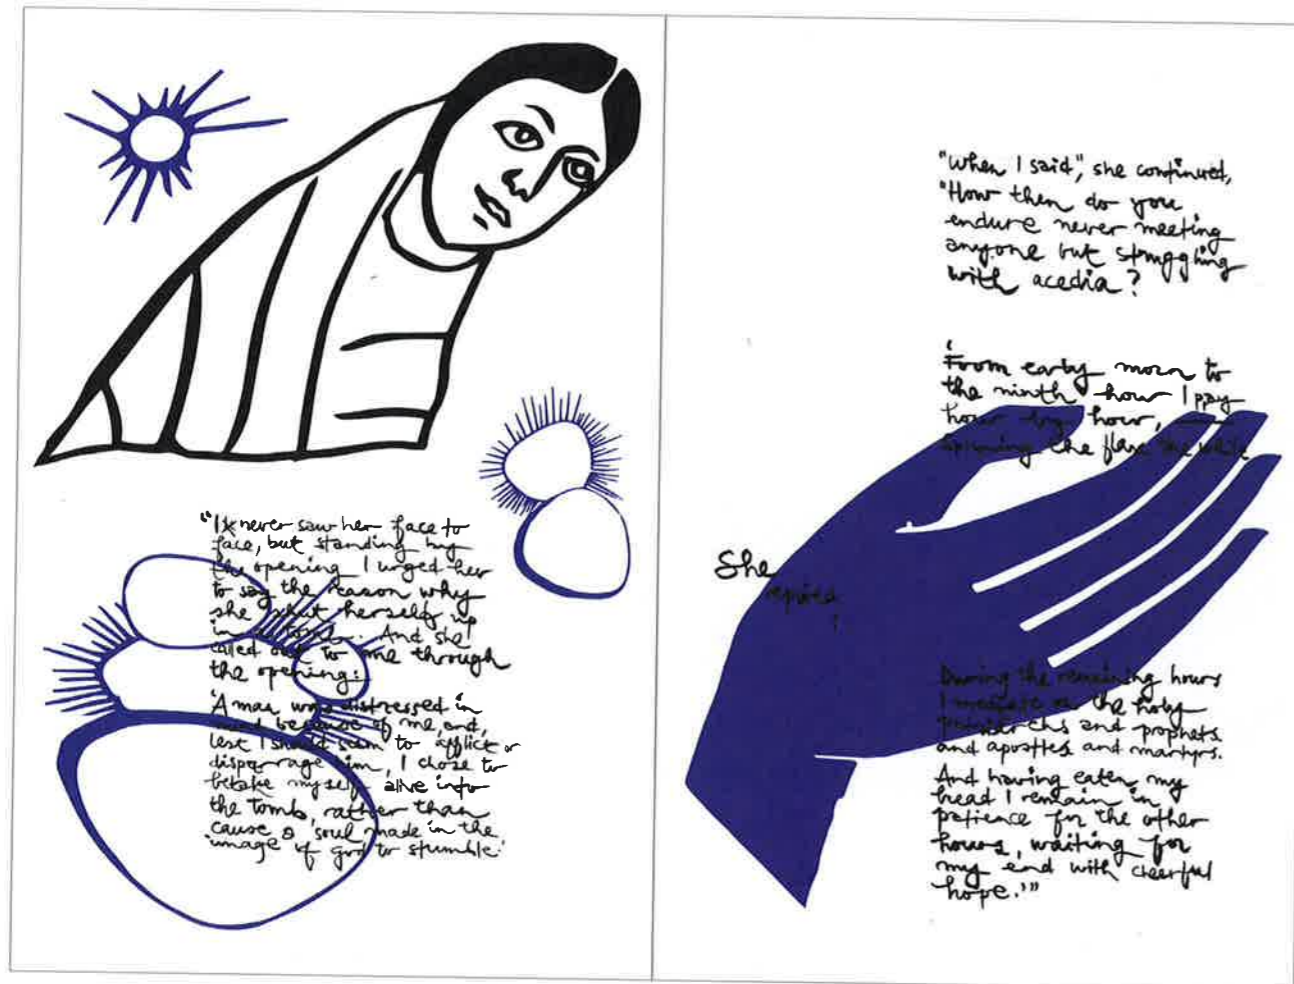 "I never saw her face to
face, but standing by
the opening I urged her
to say the reason why
she shut herself up
in a tomb. And she
called out to me through
the opening:
'A man was distressed in
mind because of me, and,
lest I should seem to afflict or
disparrage him, I chose to
betake myself alive into
the tomb, rather than
cause a soul made in the
image of god to stumble.'
"When I said", she continued,
"How then do you
endure never meeting
anyone but struggling
with acedia?
She
replied:
'From early morn to
the ninth hour I pray
hour by hour,
spinning the flax the while
During the remaining hours
I meditate on the holy
patriarchs and prophets
and apostles and martyrs.
And having eaten my
bread I remain in
patience for the other
hours, waiting for
my end with cheerful
hope.'"